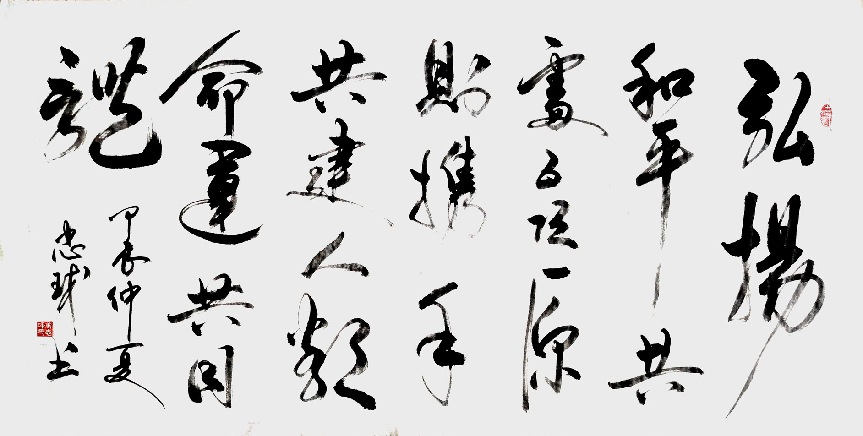 弘揚
和平共
處五項原
則携手
共建人類
命運共同
體
甲辰仲夏
忠球书